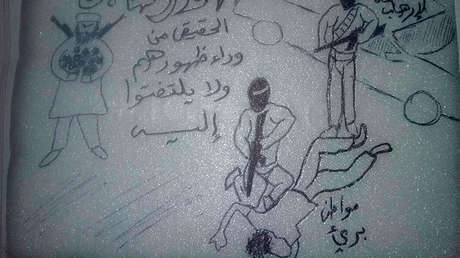 الحقيقي من
وراء ظهورهم
ولا يلتفتوا
إليه
مواطن
بريء